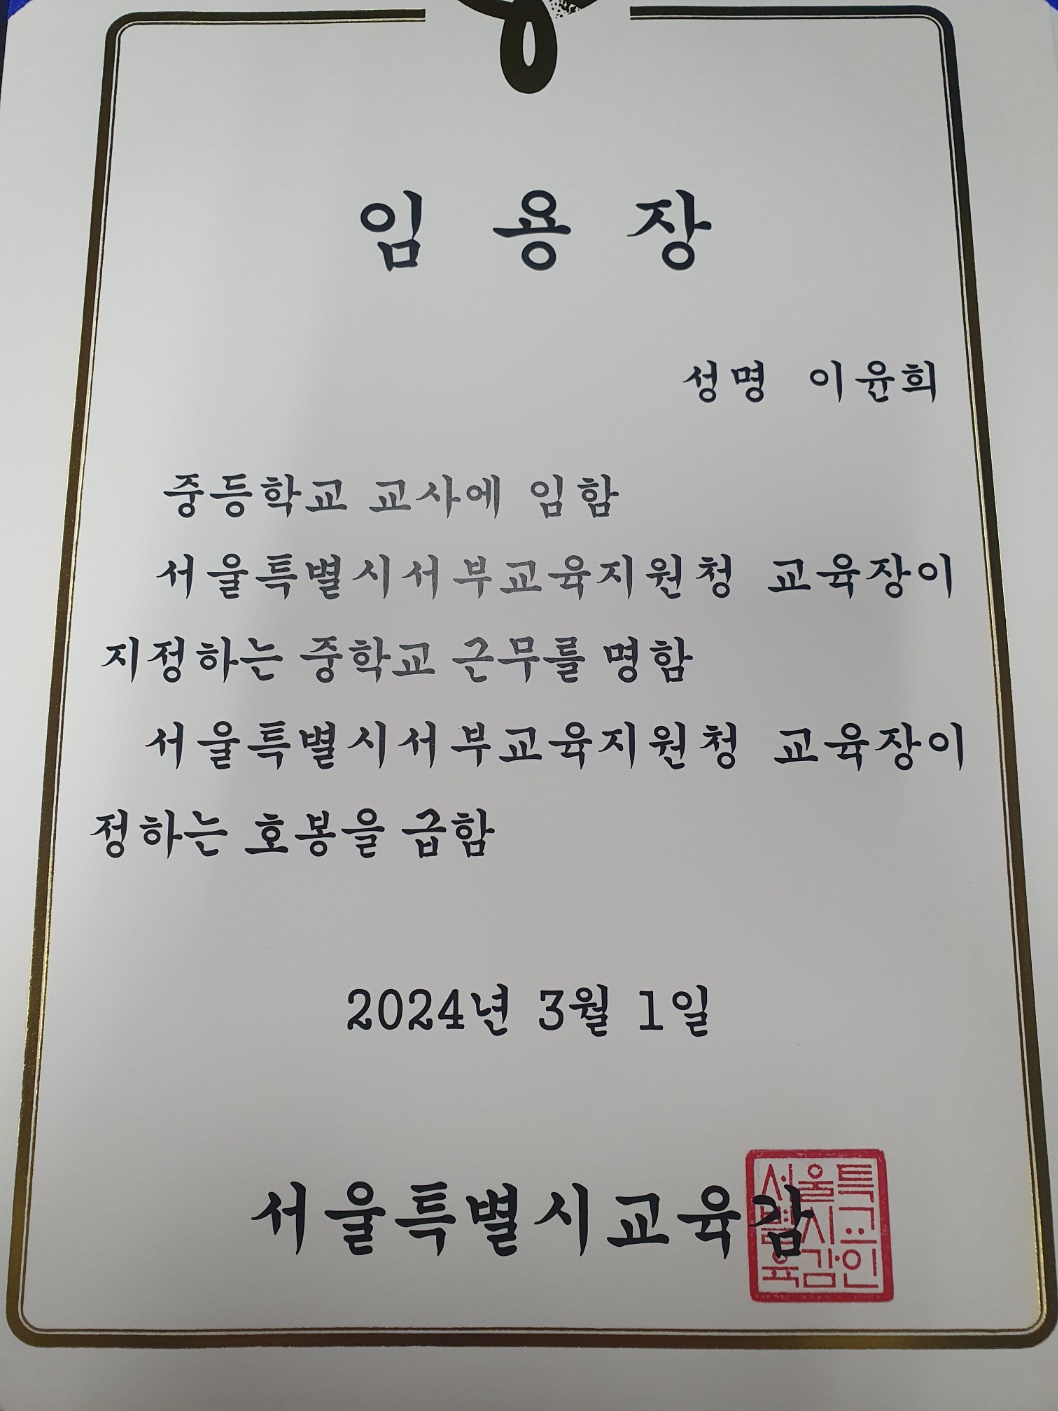 임 용 장
성명 이윤희
중등학교 교사에 임함
서울특별시서부교육지원청 교육장이
지정하는 중학교 근무를 명함
서울특별시서부교육지원청 교육장이
정하는 호봉을 급함
2024년 3월 1일
서울특별시교육감
서울특
별시교
육감인